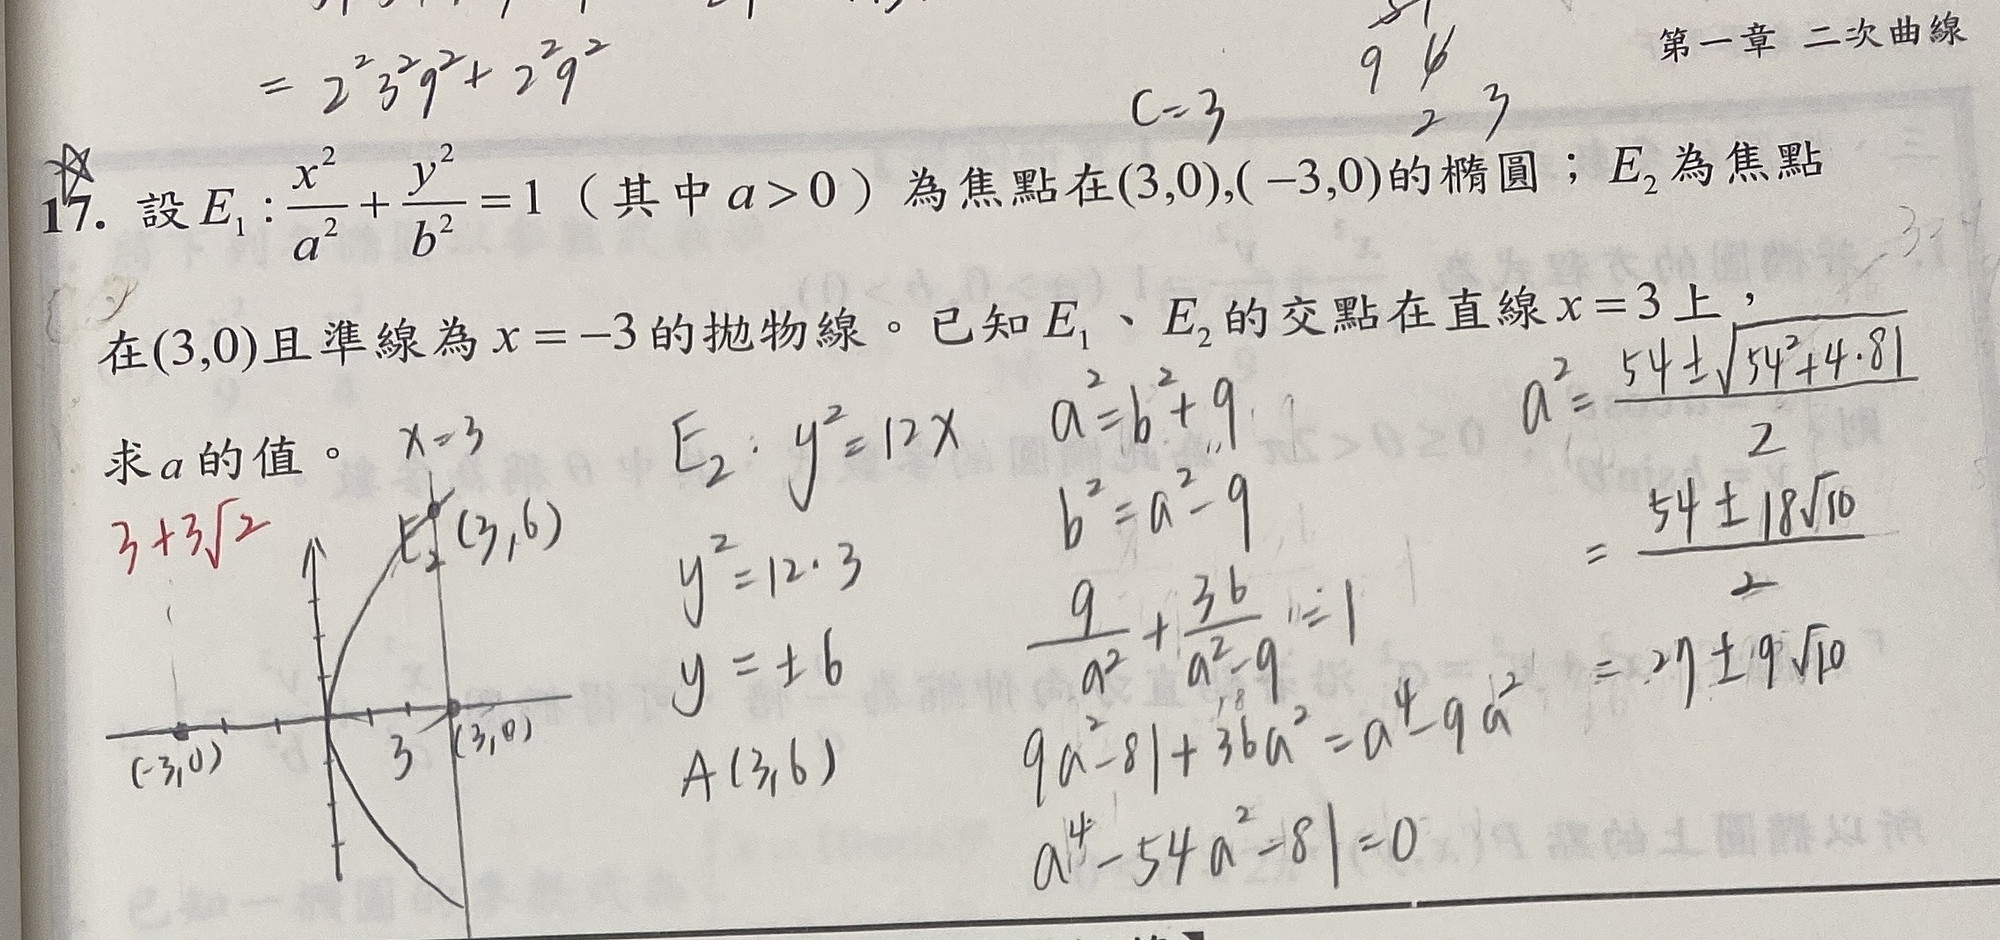 第一章 二次曲線
= 2²3²9² + 2²9²
9 6
2 3
C=3
17. 設 E₁ : x²/a² + y²/b² = 1 (其中 a > 0) 為焦點在(3,0),( −3,0)的橢圓；E₂ 為焦點
在(3,0)且準線為 x = −3 的拋物線。已知 E₁、E₂ 的交點在直線 x = 3 上，
求 a 的值。
3+3√2
x=3
E₂ (3,6)
(-3,0)
3
(3,0)
E₂ : y²=12x
y²=12·3
y=±6
A(3,6)
a²=b²+9
b²=a²-9
9/a² + 36/(a²-9) = 1
9a²-81+36a²=a⁴-9a²
a⁴-54a²-81=0
a² = (54±√(54²+4·81))/2
= (54±18√10)/2
= 27±9√10